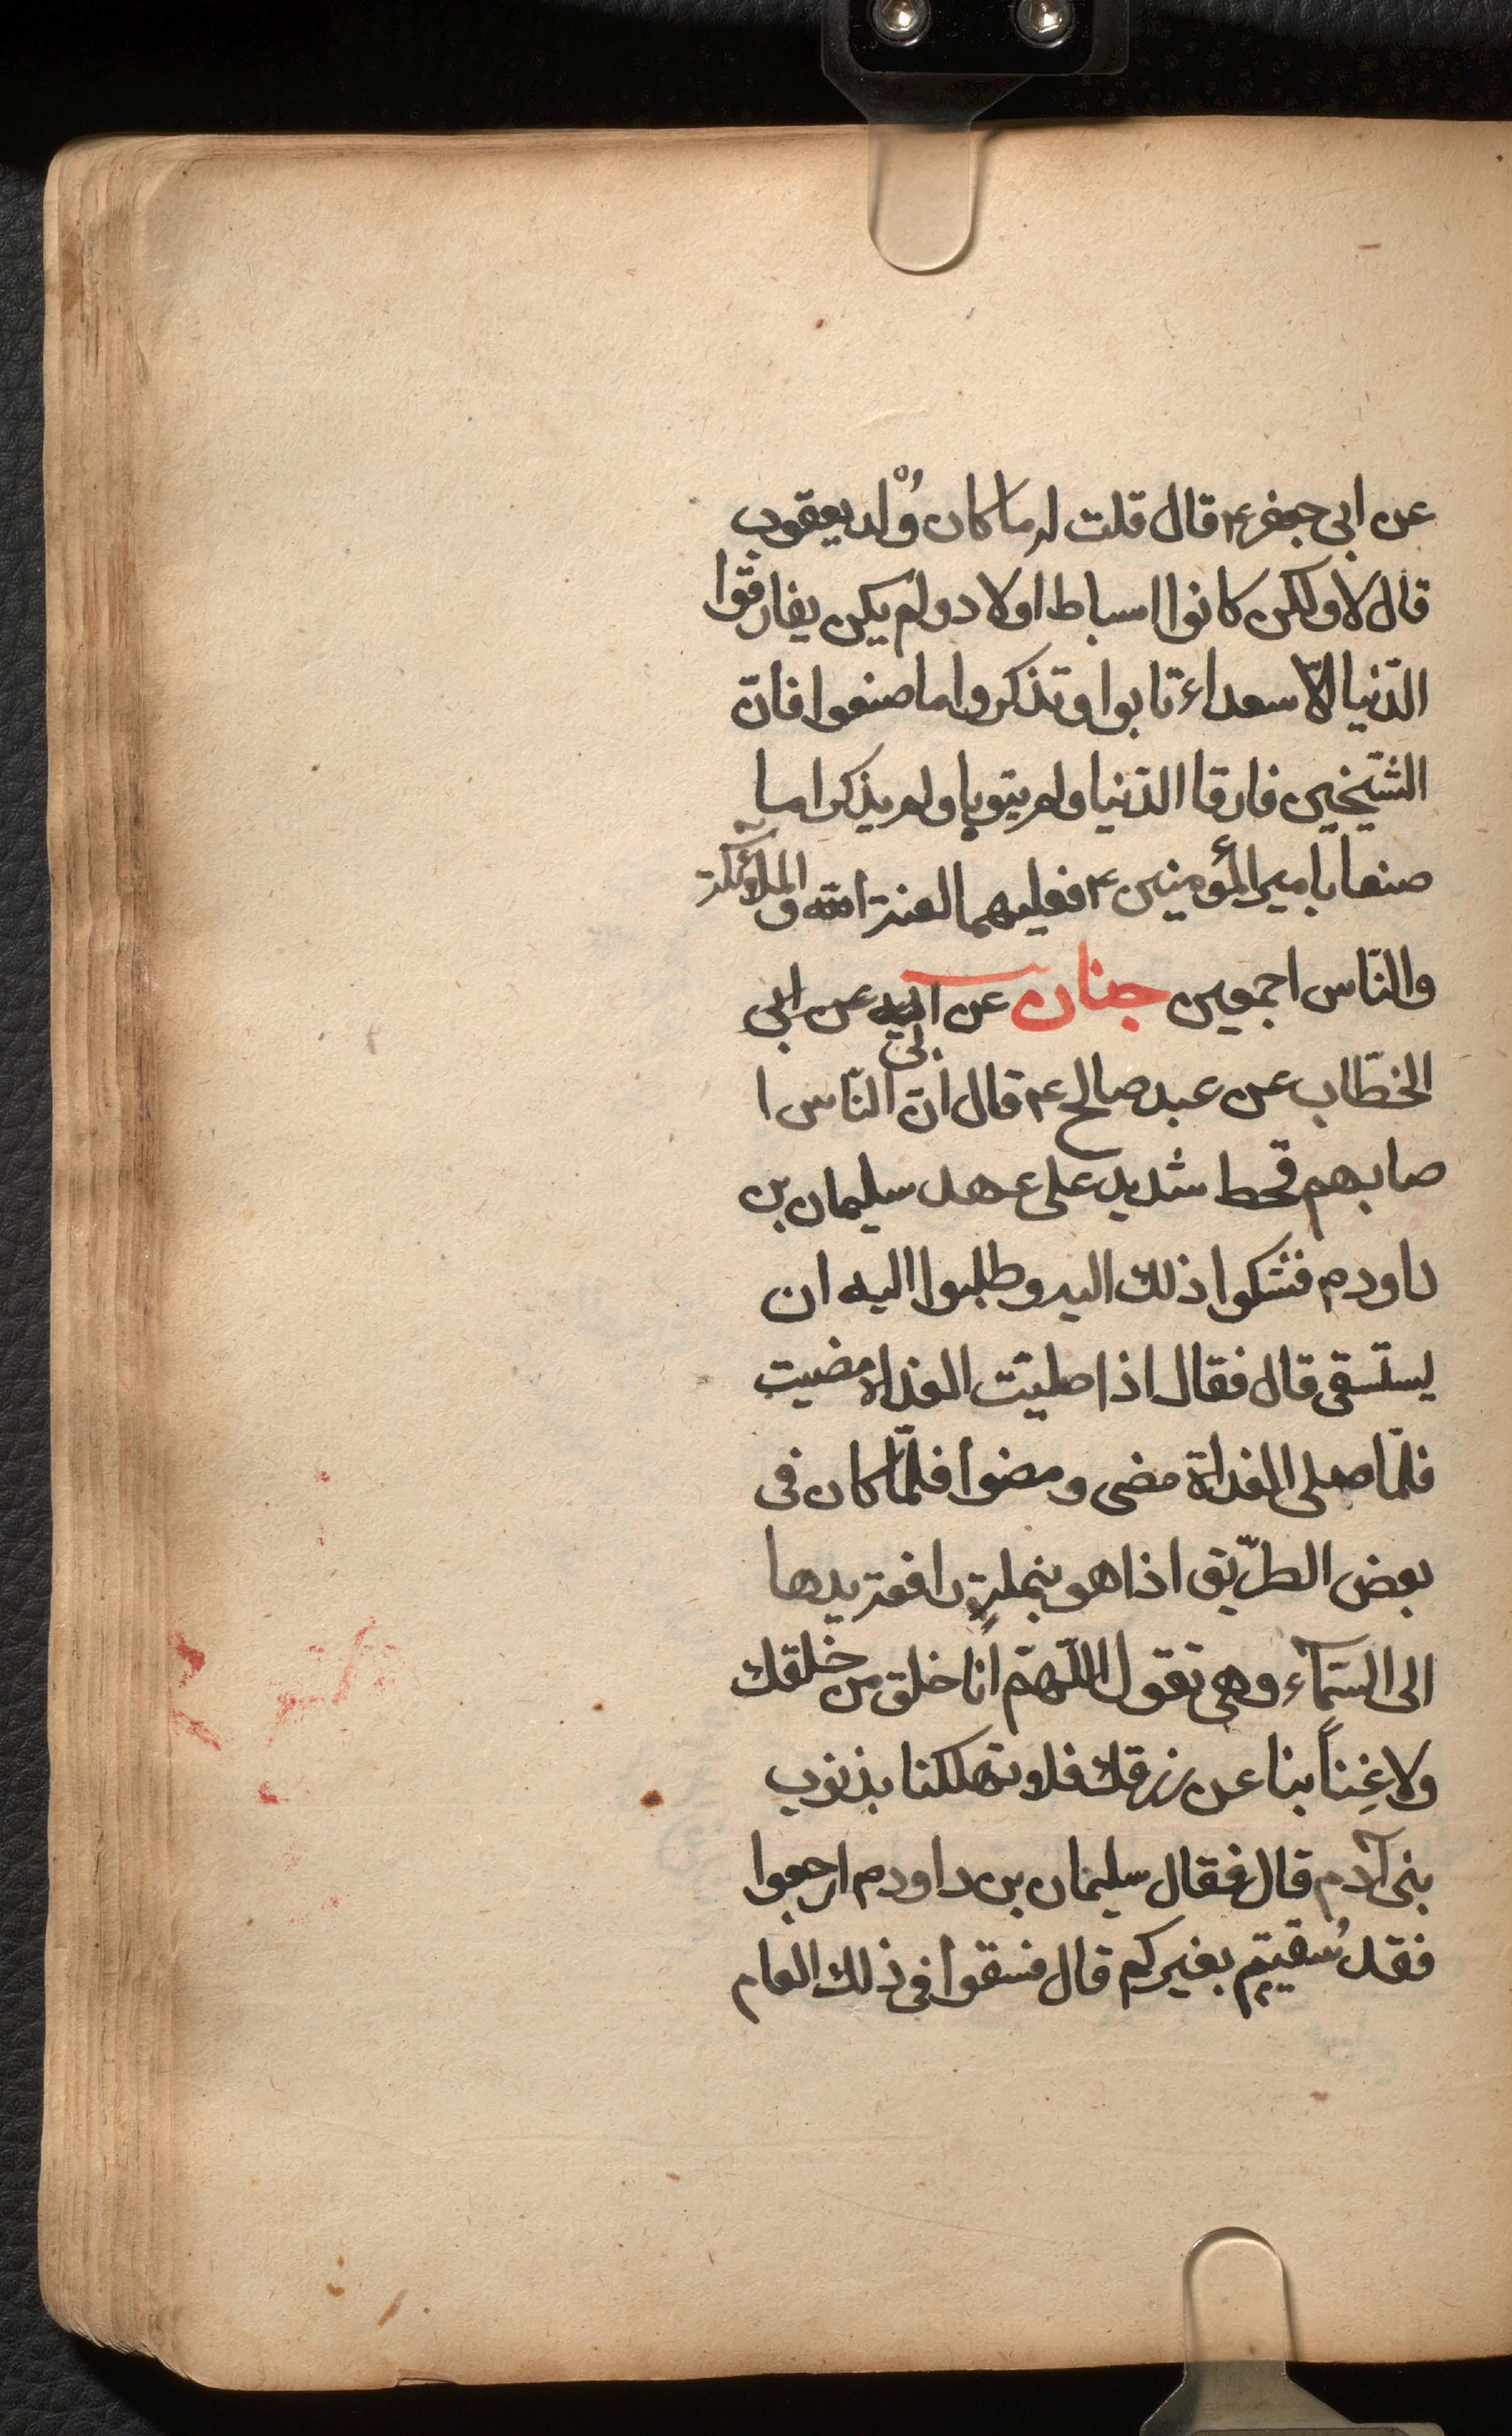 عن ابى جعفر ع قال قلت له ما كان وُلْد يعقوب
قال لا ولكن كانوا اسباط اولاد ولم يكن يفارقوا
الدّنيا الّا سعداء تابوا وتذكروا ما صنعوا فانّ
الشّيخين فارقا الدّنيا ولم يتوبا ولم يذكرا ما
صنعا باميرالمؤمنين ع فعليهما لعنة الله والملائكة
والنّاس اجمعين جنان عن ابيه عن ابى
الخطّاب عن عبد صالح ع قال انّ النّاس ا
صابهم قحط شديد على عهد سليمان بن
داود م فشكوا ذلك اليه وطلبوا اليه ان
يستسقى قال فقال اذا صليّت الغداة مضيت
فلمّا صلى الغداة مضى ومضوا فلمّا كان فى
بعض الطّريق اذا هو بنملةٍ رافعة يدها
الى السّمآء وهى تقول اللّهمّ انا خلق من خلقك
ولا غِناً بنا عن رزقك فلا تهلكنا بذنوب
بنى آدم قال فقال سليمان بن داود م ارجعوا
فقد سُقيتم بغيركم قال فسقوا فى ذلك العام